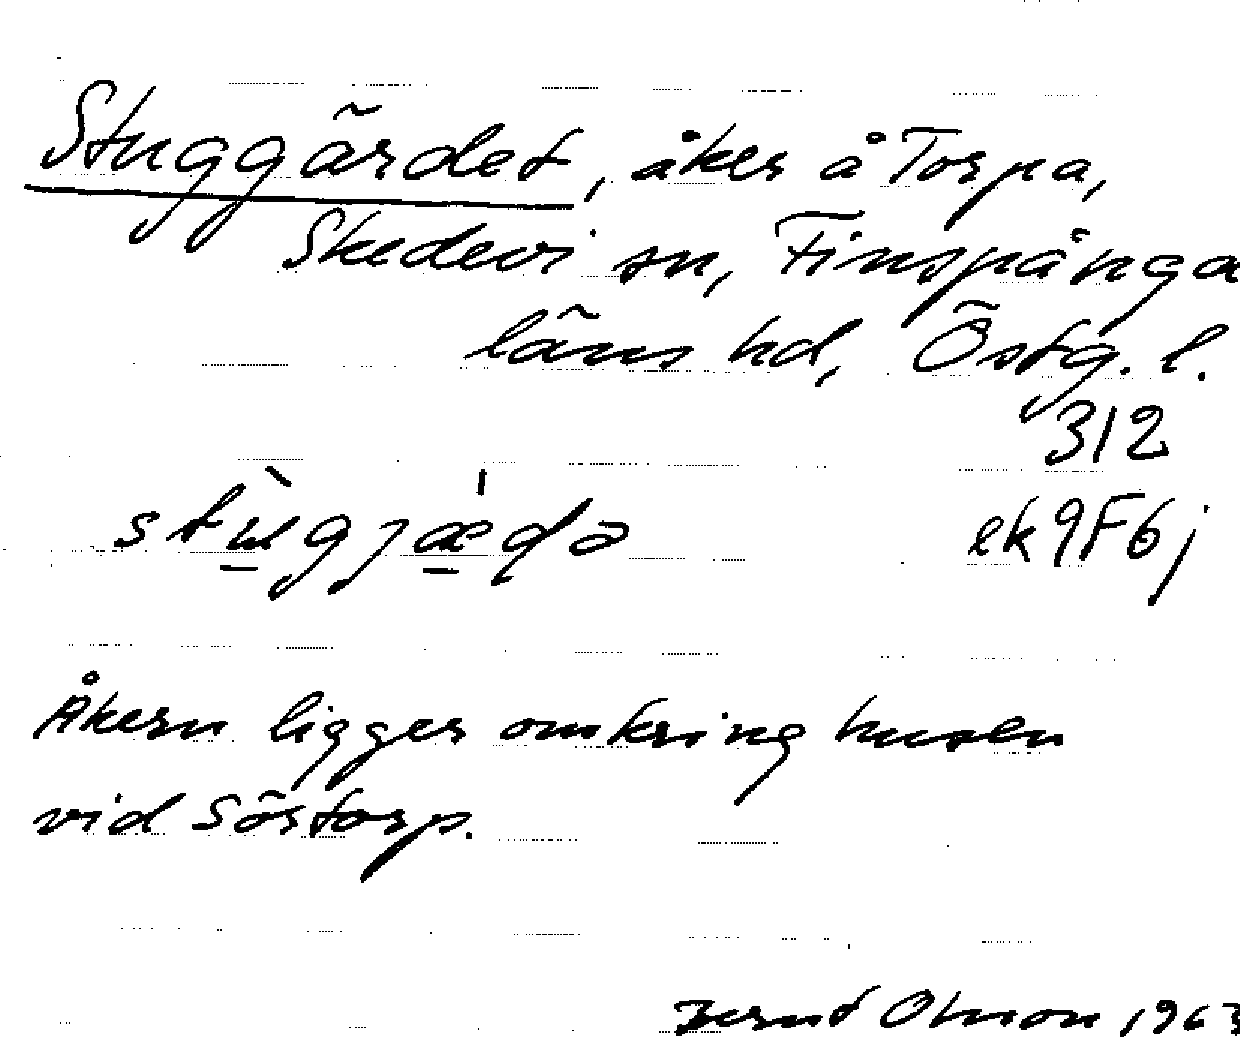 Stuggärdet, åker å Torpa,
Skedevi sn, Finspånga
läns hd, Östg. l.
312
stùgjæ̍ɖə ek9F6j
Åkern ligger omkring husen
vid Sörtorp.
Bernt Olsson 1963